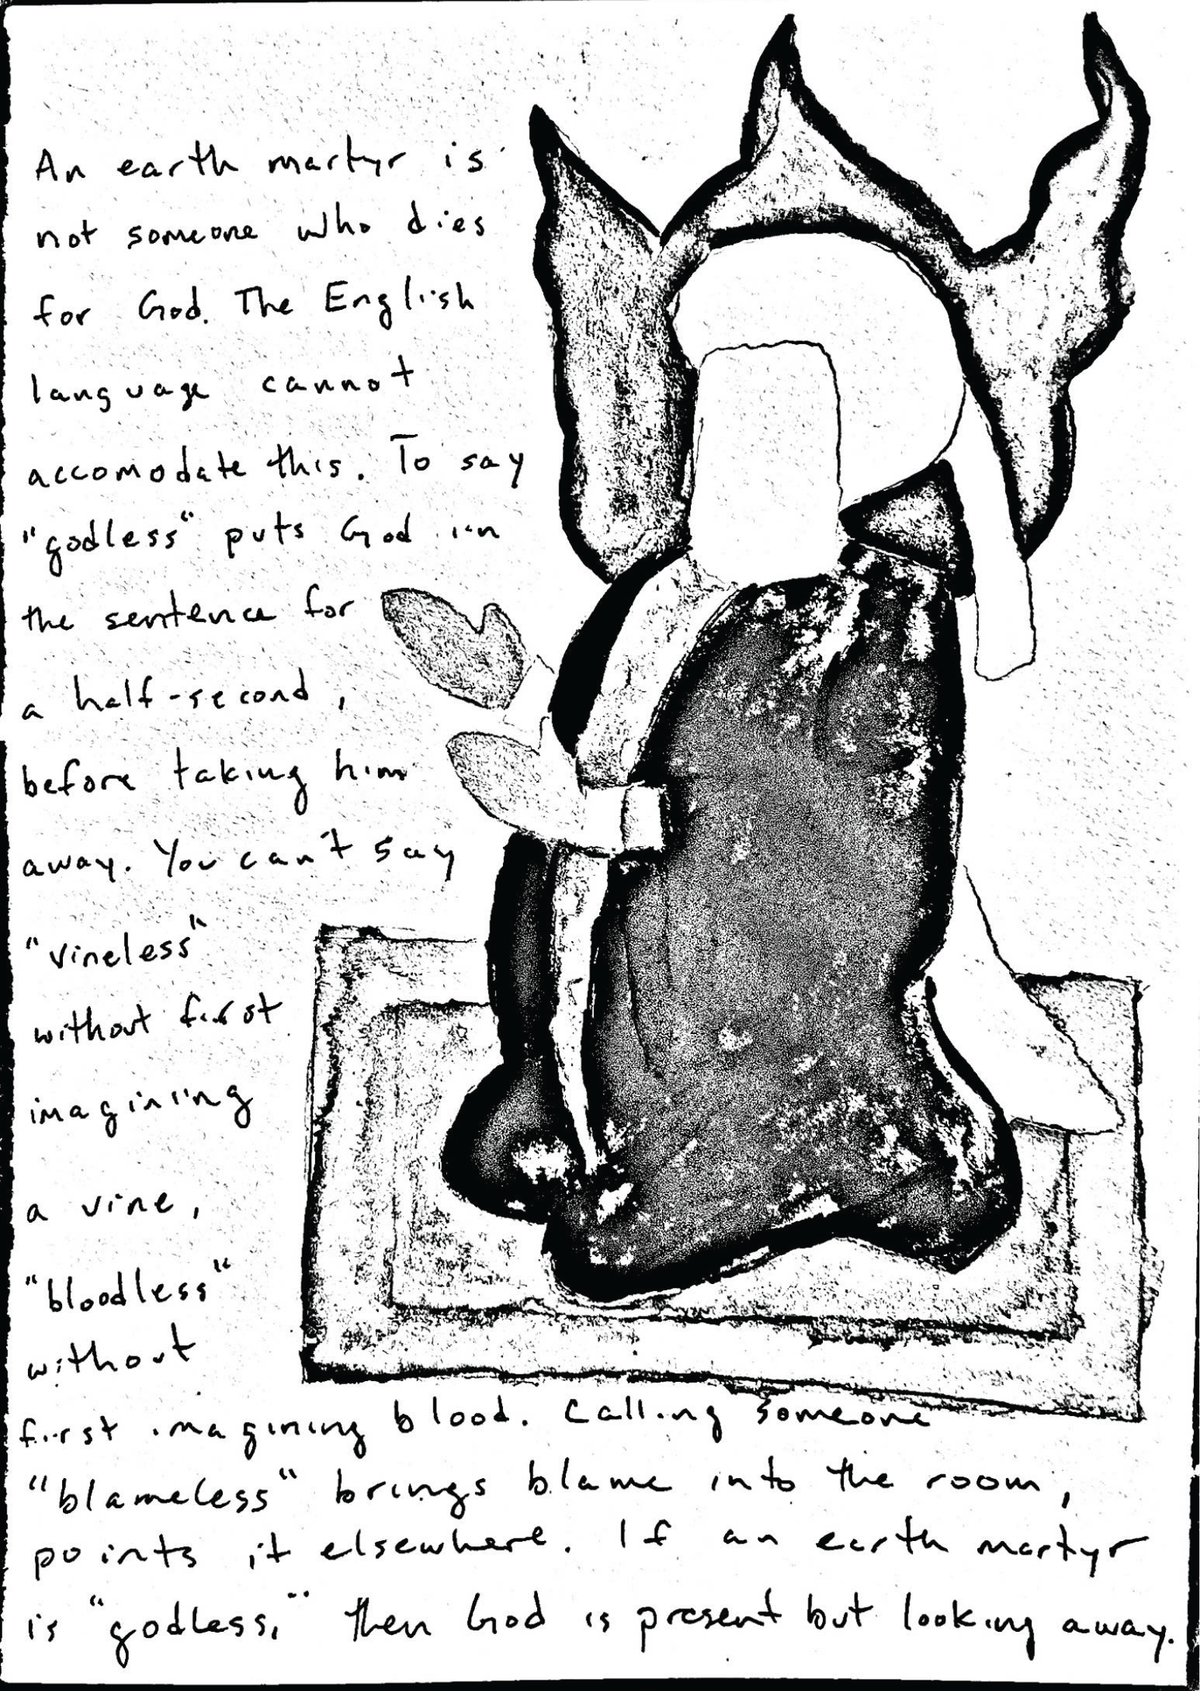 An earth martyr is
not someone who dies
for God. The English
language cannot
accomodate this. To say
"godless" puts God in
the sentence for
a half-second,
before taking him
away. You can't say
"vineless"
without first
imagining
a vine,
"bloodless"
without
first imagining blood. Calling someone
"blameless" brings blame into the room,
points it elsewhere. If an earth martyr
is "godless," then God is present but looking away.